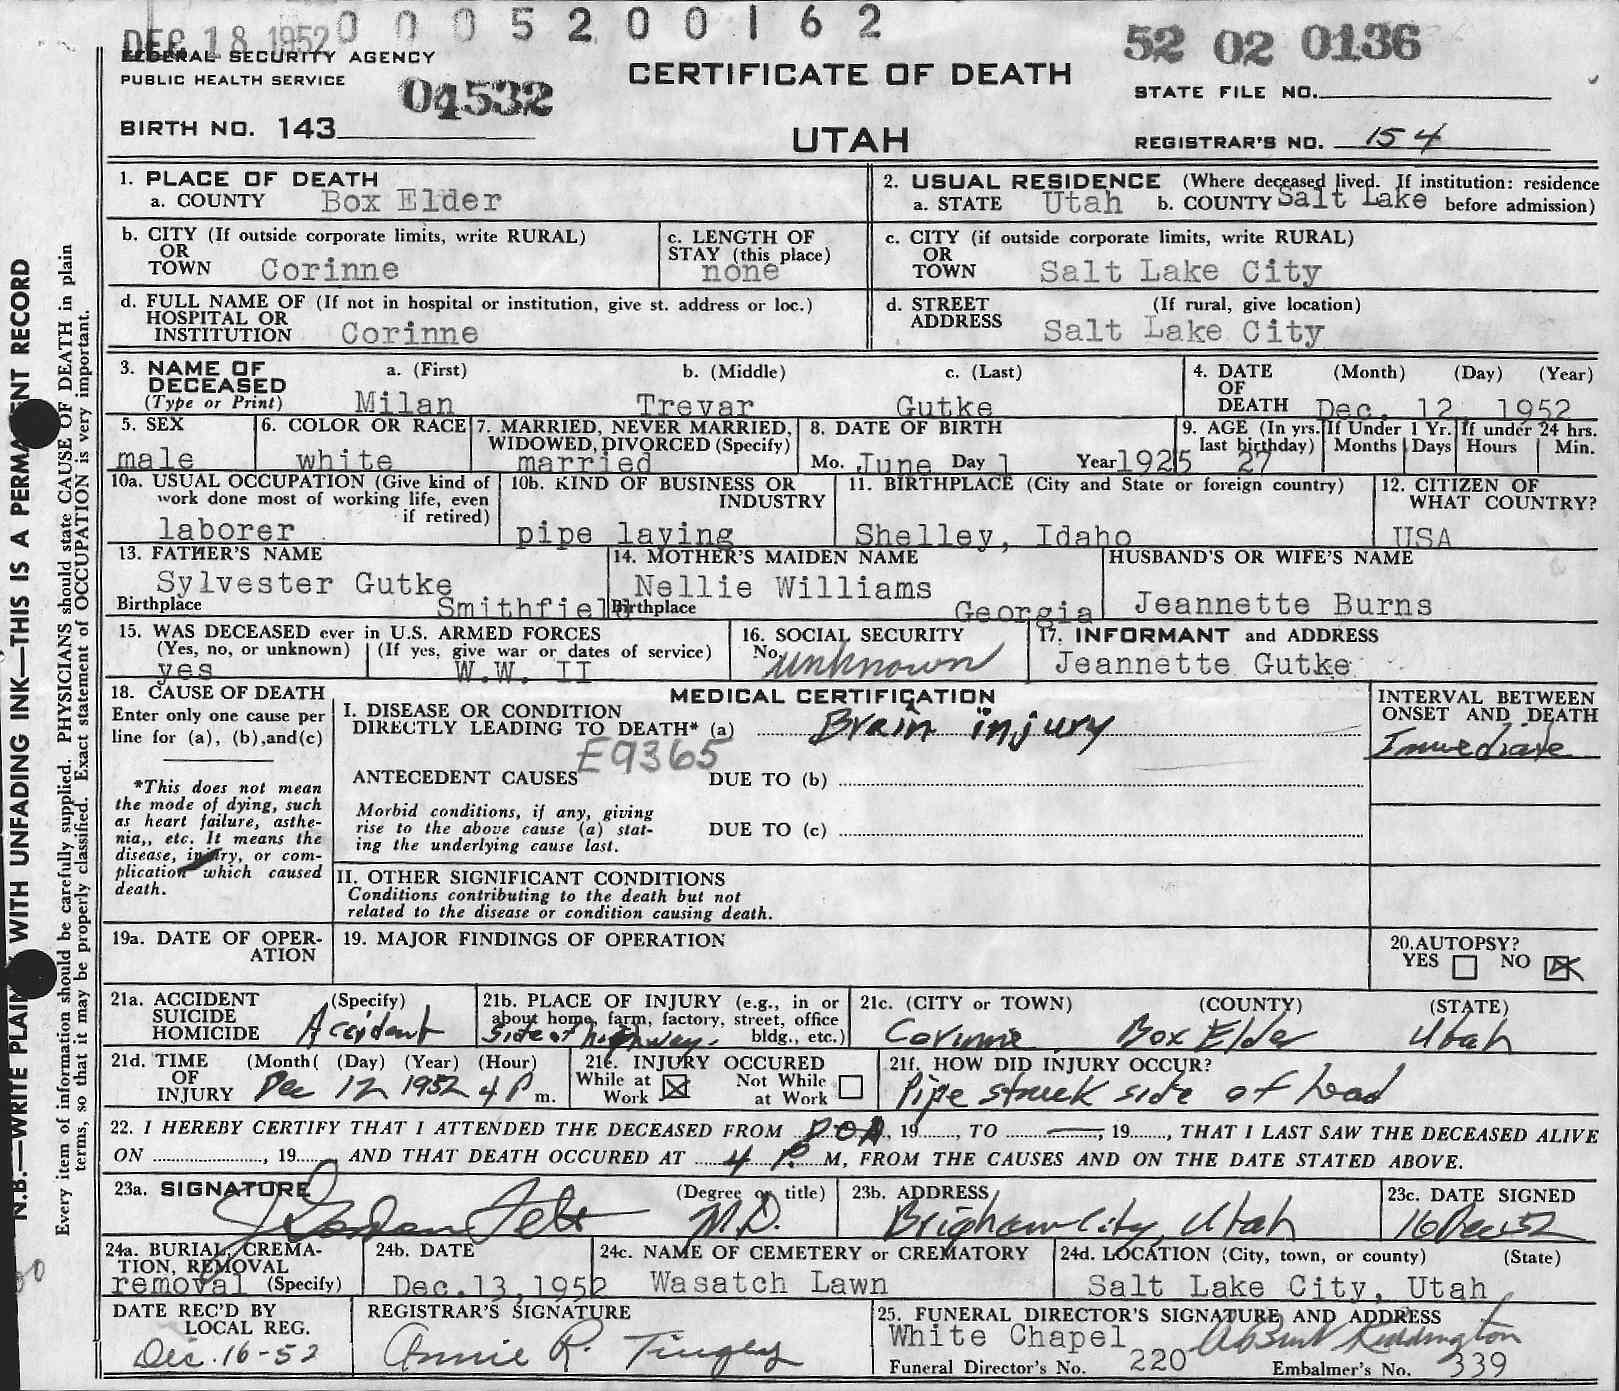 0 0 0 5 2 0 0 1 6 2
DEC 18 1952
52 02 0136
FEDERAL SECURITY AGENCY
PUBLIC HEALTH SERVICE
04532
CERTIFICATE OF DEATH
STATE FILE NO.
BIRTH NO. 143
UTAH
REGISTRAR'S NO. 154
1. PLACE OF DEATH
a. COUNTY Box Elder
2. USUAL RESIDENCE (Where deceased lived. If institution: residence
a. STATE Utah b. COUNTY Salt Lake before admission)
b. CITY (If outside corporate limits, write RURAL)
OR
TOWN Corinne
c. LENGTH OF
STAY (this place)
none
c. CITY (if outside corporate limits, write RURAL)
OR
TOWN Salt Lake City
d. FULL NAME OF (If not in hospital or institution, give st. address or loc.)
HOSPITAL OR
INSTITUTION Corinne
d. STREET (If rural, give location)
ADDRESS Salt Lake City
3. NAME OF a. (First) b. (Middle) c. (Last)
DECEASED
(Type or Print) Milan Trevar Gutke
4. DATE (Month) (Day) (Year)
OF
DEATH Dec. 12, 1952
5. SEX
male
6. COLOR OR RACE
white
7. MARRIED, NEVER MARRIED,
WIDOWED, DIVORCED (Specify)
married
8. DATE OF BIRTH
Mo. June Day 1 Year 1925
9. AGE (In yrs.
last birthday) 27
If Under 1 Yr.
Months Days
If under 24 hrs.
Hours Min.
10a. USUAL OCCUPATION (Give kind of
work done most of working life, even
if retired)
laborer
10b. KIND OF BUSINESS OR
INDUSTRY
pipe laying
11. BIRTHPLACE (City and State or foreign country)
Shelley, Idaho
12. CITIZEN OF
WHAT COUNTRY?
USA
13. FATHER'S NAME
Sylvester Gutke
Birthplace Smithfield
14. MOTHER'S MAIDEN NAME
Nellie Williams
Birthplace Georgia
HUSBAND'S OR WIFE'S NAME
Jeannette Burns
15. WAS DECEASED ever in U.S. ARMED FORCES
(Yes, no, or unknown) (If yes, give war or dates of service)
yes W.W. II
16. SOCIAL SECURITY
No. unknown
17. INFORMANT and ADDRESS
Jeannette Gutke
18. CAUSE OF DEATH
Enter only one cause per
line for (a), (b), and (c)
*This does not mean
the mode of dying, such
as heart failure, asthe-
nia,, etc. It means the
disease, injury, or com-
plication which caused
death.
MEDICAL CERTIFICATION
I. DISEASE OR CONDITION
DIRECTLY LEADING TO DEATH* (a) Brain injury
E9365
ANTECEDENT CAUSES DUE TO (b)
Morbid conditions, if any, giving
rise to the above cause (a) stat-
ing the underlying cause last.
DUE TO (c)
II. OTHER SIGNIFICANT CONDITIONS
Conditions contributing to the death but not
related to the disease or condition causing death.
INTERVAL BETWEEN
ONSET AND DEATH
Immediate
19a. DATE OF OPER-
ATION
19. MAJOR FINDINGS OF OPERATION
20. AUTOPSY?
YES NO
21a. ACCIDENT (Specify)
SUICIDE
HOMICIDE Accident
21b. PLACE OF INJURY (e.g., in or
about home, farm, factory, street, office
bldg., etc.)
side of highway.
21c. (CITY or TOWN) (COUNTY) (STATE)
Corinne Box Elder Utah
21d. TIME (Month( (Day) (Year) (Hour)
OF
INJURY Dec 12 1952 4 P m.
21e. INJURY OCCURED
While at Work Not While at Work
21f. HOW DID INJURY OCCUR?
Pipe struck side of head
22. I HEREBY CERTIFY THAT I ATTENDED THE DECEASED FROM DOA, 19, TO , 19, THAT I LAST SAW THE DECEASED ALIVE
ON , 19 AND THAT DEATH OCCURED AT 4 P. M, FROM THE CAUSES AND ON THE DATE STATED ABOVE.
23a. SIGNATURE (Degree or title)
M.D.
23b. ADDRESS
Brigham City, Utah
23c. DATE SIGNED
16 Dec 52
24a. BURIAL, CREMA-
TION, REMOVAL
removal (Specify)
24b. DATE
Dec. 13, 1952
24c. NAME OF CEMETERY or CREMATORY
Wasatch Lawn
24d. LOCATION (City, town, or county) (State)
Salt Lake City, Utah
DATE REC'D BY
LOCAL REG.
Dec. 16-52
REGISTRAR'S SIGNATURE
Annie R. Tingey
25. FUNERAL DIRECTOR'S SIGNATURE AND ADDRESS
White Chapel
Funeral Director's No. 220 Embalmer's No. 339
N.B.—WRITE PLAIN WITH UNFADING INK—THIS IS A PERMANENT RECORD
Every item of information should be carefully supplied. PHYSICIANS should state CAUSE OF DEATH in plain
terms, so that it may be properly classified. Exact statement of OCCUPATION is very important.